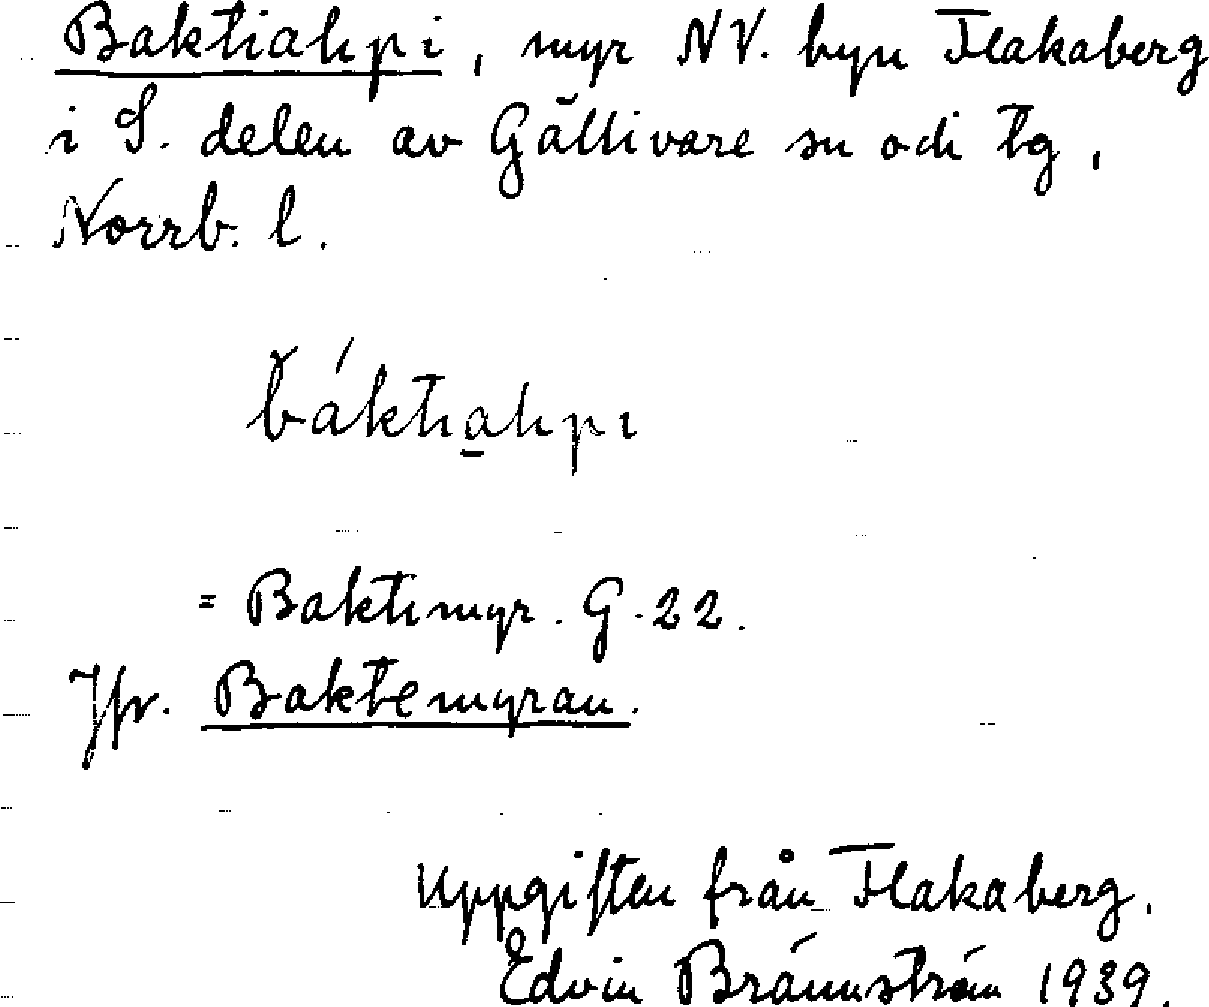 Baktiahpi, myr NV. byn Flakaberg
i S. delen av Gällivare sn och tg,
Norrb. l.
b̌áktia̱hpi
= Baktimyr. G. 22.
Jfr. Baktemyran.
Uppgiften från Flakaberg.
Edvin Brännström 1939.